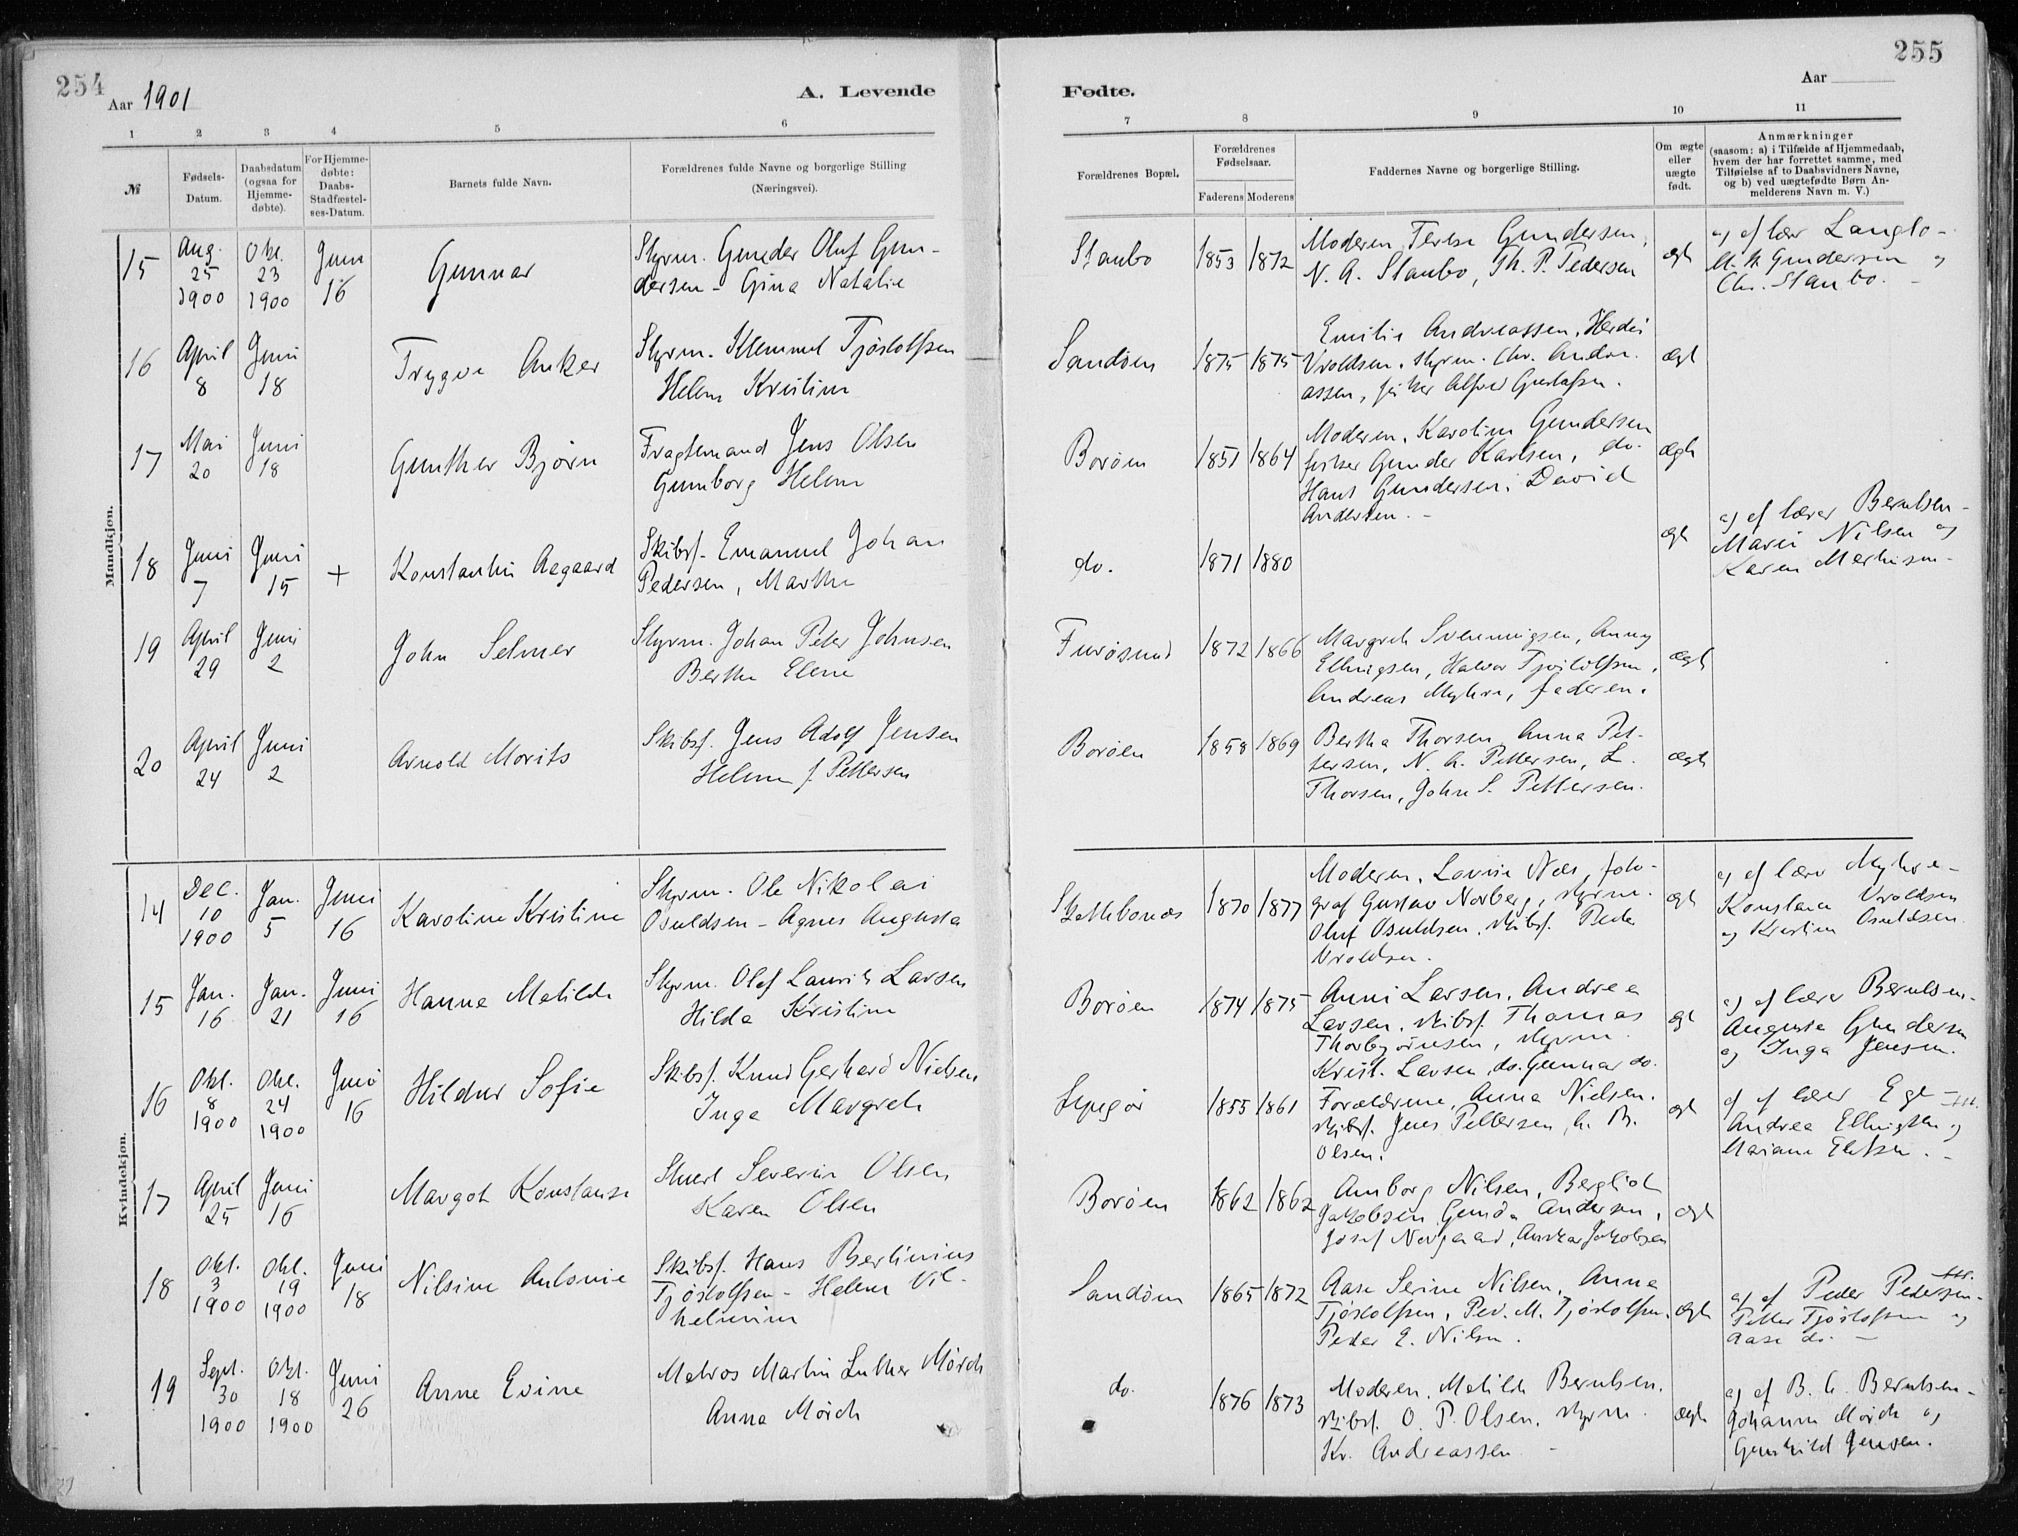 254
Aar 1901
A. Levende
1 2 3 4 5 6
№
Fødsels-
Datum.
Daabsdatum
(ogsaa for
Hjemme-
døbte).
For Hjemme-
døbte:
Daabs-
Stadfæstel-
ses-Datum.
Barnets fulde Navn.
Forældrenes fulde Navne og borgerlige Stilling
(Næringsvei).
Mandkjøn.
15
Aug.
25
1900
Okt.
23
1900
Juni
16
Gunnar
Styrm. Gunder Oluf Gun-
dersen - Gina Natalie
16
April
8
Juni
18
Trygve Anker
Styrm. Klemmet Tjøstolfsen
Helene Kristine
17
Mai
20
Juni
18
Gunther Bjørn
Fragtemand Jens Olsen
Gunborg Helene
18
Juni
7
Juni
15
+
Konstantin Aagaard
Skibsf. Emanuel Johan
Pedersen, Marthe
19
April
29
Juni
2
John Selmer
Styrm. Johan Peter Johnsen
Berthe Elene
20
April
24
Juni
2
Arnold Morits
Skibsf. Jens Adolf Jensen
Helene f. Pettersen
Kvindekjøn.
14
Dec.
10
1900
Jan.
5
Juni
16
Karoline Kristine
Styrm. Ole Nikolai
Osuldsen - Agnes Augusta
15
Jan.
16
Jan.
21
Juni
16
Hanna Matilde
Styrm. Olaf Laurits Larsen
Hilda Kristine
16
Okt.
8
1900
Okt.
24
1900
Juni
16
Hildur Sofie
Skibsf. Knud Gerhard Nielsen
Inga Margrete
17
April
25
Juni
16
Margot Konstanse
Severin Olsen
Karen Olsen
18
Okt.
3
1900
Okt.
19
1900
Juni
18
Nilsine Antonie
Skibsf. Hans Bertinius
Tjøstolfsen - Helene Vil-
helmine
19
Sept.
30
1900
Okt.
18
1900
Juni
26
Anne Evine
Matros Martin Luther Mørch
Anna Mørch
255
Aar
Fødte.
7 8 9 10 11
Forældrenes Bopæl.
Forældrenes
Fødselsaar.
Faderens Moderens
Faddernes Navne og borgerlige Stilling.
Om ægte
eller
uægte
født.
Anmærkninger
(saasom: a) i Tilfælde af Hjemmedaab,
hvem der har forrettet samme, med
Tilføielse af to Daabsvidners Navne,
og b) ved uægtefødte Børn An-
melderens Navn m. V.)
Staubo
1853 1872
Moderen, Terese Gundersen,
N. A. Staubo, Th. P. Pedersen
ægt
a) af lærer Langlo -
Gundersen og
Chr. Staubo. -
Sandøen
1875 1875
Emilie Andreassen, Herdis
Vroldsen, styrm. Chr. Andre-
assen, fisker Alfred Gustafsen.
ægt
Borøen
1851 1864
Moderen, Karoline Gundersen
fisker Gunder Karlsen, do.
Hans Gundersen, David
Andersen. -
ægt
do.
1871 1880
ægt
a) af lærer Berntsen -
Marie Nilsen og
Karen Mathisen -
Furøsund
1872 1866
Margrete Svenningsen, Anny
Ellingsen, Halvor Tjøstolfsen,
Andreas Myhre, faderen.
ægt
Borøen
1858 1869
Bertha Thorsen, Anna Pet-
tersen, N. A. Pettersen, L.
Thorsen, John S. Pettersen.
ægt
1870 1877
Moderen, Lovise Næs, foto-
graf Gustav Norberg, styrm.
Oluf Osuldsen, skibsf. Peder
Vroldsen.
ægt
a) af lærer Myhre -
Konstance Vroldsen
og Kristine Osuldsen
Borøen
1874 1875
Anni Larsen, Andrea
Larsen, skibsf. Thomas
Thorbjørnsen, styrm.
Krist. Larsen, do. Gunnar do.
ægt
a) af lærer Berntsen -
Augusta Gundersen
og Inga Jensen.
1855 1861
Forældrene, Anna Nielsen,
skibsf. Jens Pettersen,
Olsen.
ægt
a) af lærer
Andrea Ellingsen og
Mariane
Borøen
1862 1862
Amborg Nilsen, Bergliot
Jakobsen, Andersen,
Josef Norgaard, Jakobsen
ægt
Sandøen
1865 1872
Aase Serine Nilsen, Anne
Tjøstolfsen, Ped. M. Tjøstolfsen,
Peder E. Nilsen.
ægt
a) af Peder Pedersen -
Petter Tjøstolfsen og
Aase do. -
do.
1876 1873
Moderen, Matilde Berntsen,
skibsf. O. P. Olsen, styrm.
Kr. Andreassen -
ægt
a) af B. A. Berntsen -
Johanne Mørch og
Gunhild Jensen.